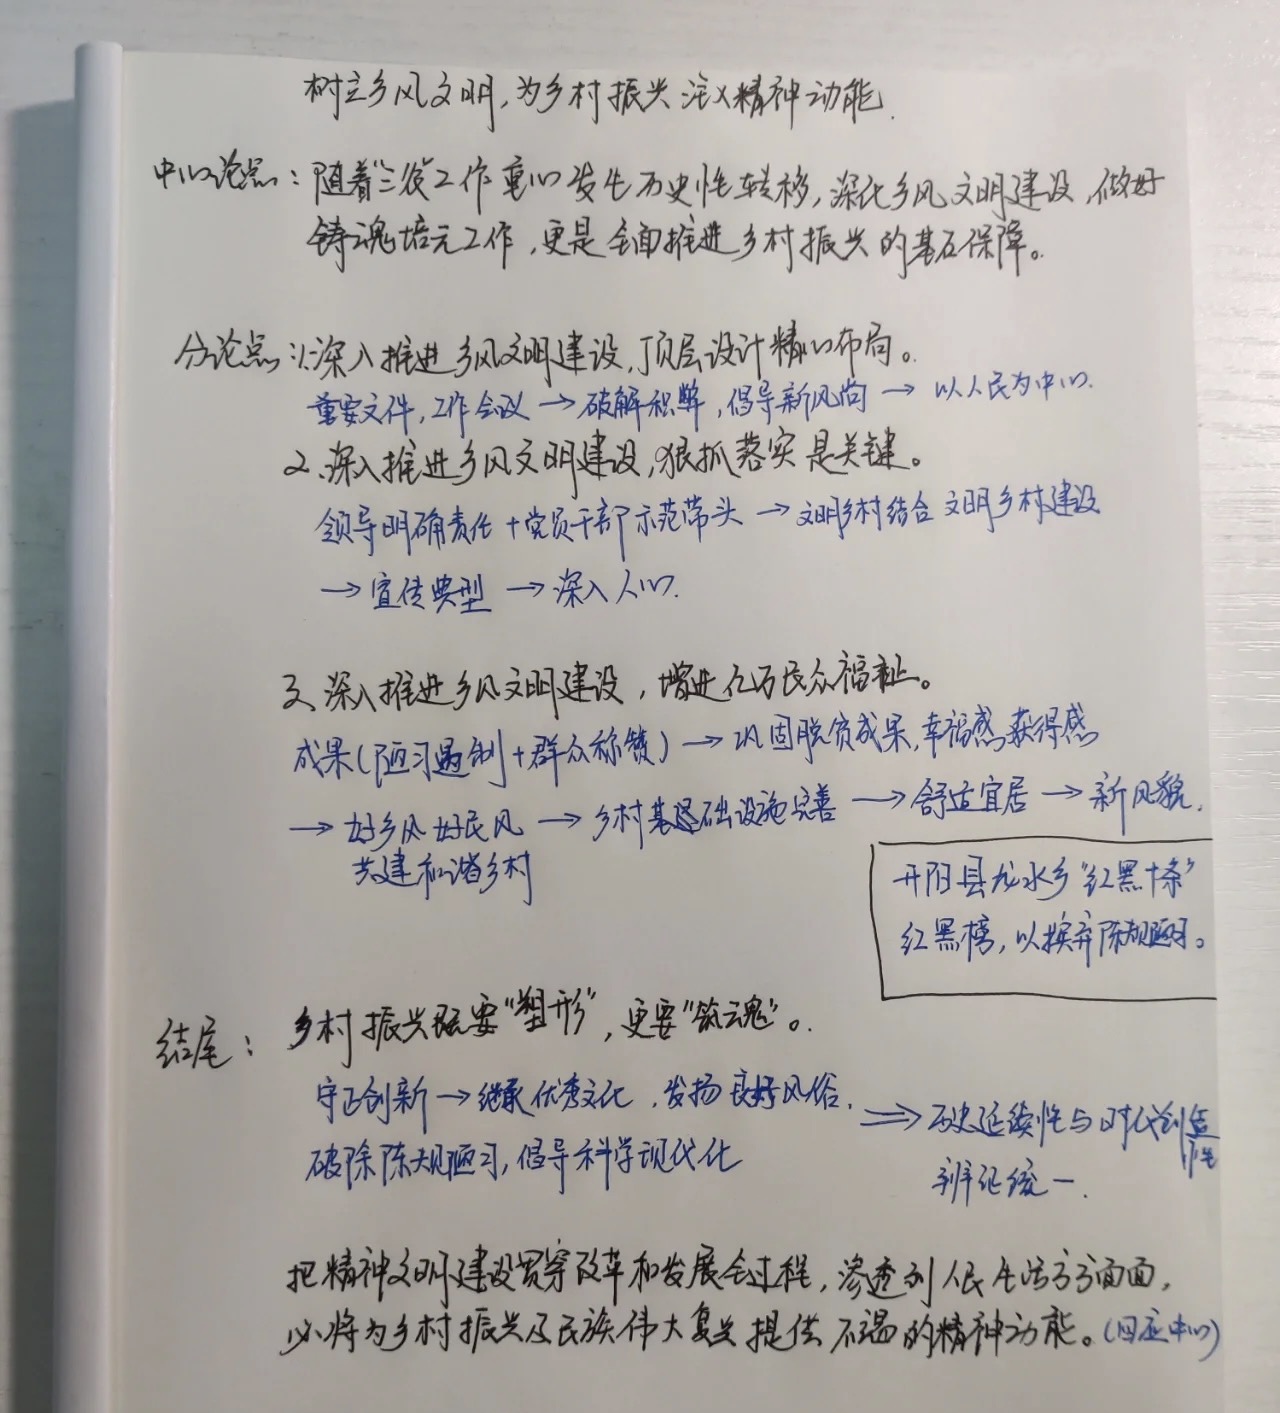 树立乡风文明,为乡村振兴注入精神动能.
中心论点:随着"三农"工作重心发生历史性转移,深化乡风文明建设,做好
铸魂培元工作,更是全面推进乡村振兴的基石保障。
分论点:1.深入推进乡风文明建设,顶层设计精心布局。
重要文件,工作会议→破解积弊,倡导新风尚→以人民为中心.
2.深入推进乡风文明建设,狠抓落实是关键。
领导明确责任+党员干部示范带头→文明乡村结合文明乡村建设
→宣传典型→深入人心.
3.深入推进乡风文明建设,增进亿万民众福祉。
成果(陋习遏制+群众称赞)→巩固脱贫成果,幸福感获得感
→好乡风好民风→乡村基础设施完善→舒适宜居→新风貌.
共建和谐乡村
开阳县龙水乡"红黑十条"
红黑榜,以摈弃陈规陋习。
结尾:乡村振兴既要"塑形",更要"筑魂"。
守正创新→继承优秀文化,发扬良好风俗.
破除陈规陋习,倡导科学现代化
⇒历史延续性与时代创造性
辨证统一.
把精神文明建设贯穿改革和发展全过程,渗透到人民生活方方面面,
必将为乡村振兴及民族伟大复兴提供不竭的精神动能。(回应中心)